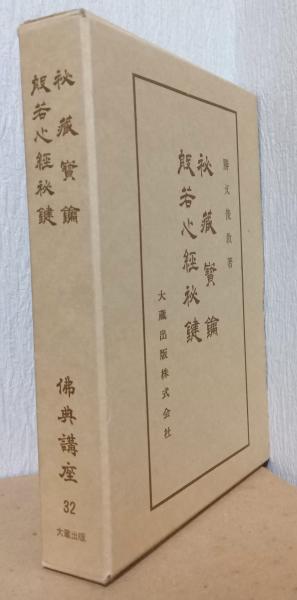 秘藏寶鑰
般若心經秘鍵
佛典講座
32
大蔵出版
勝又俊教著
秘藏寶鑰
般若心經秘鍵
大蔵出版株式会社